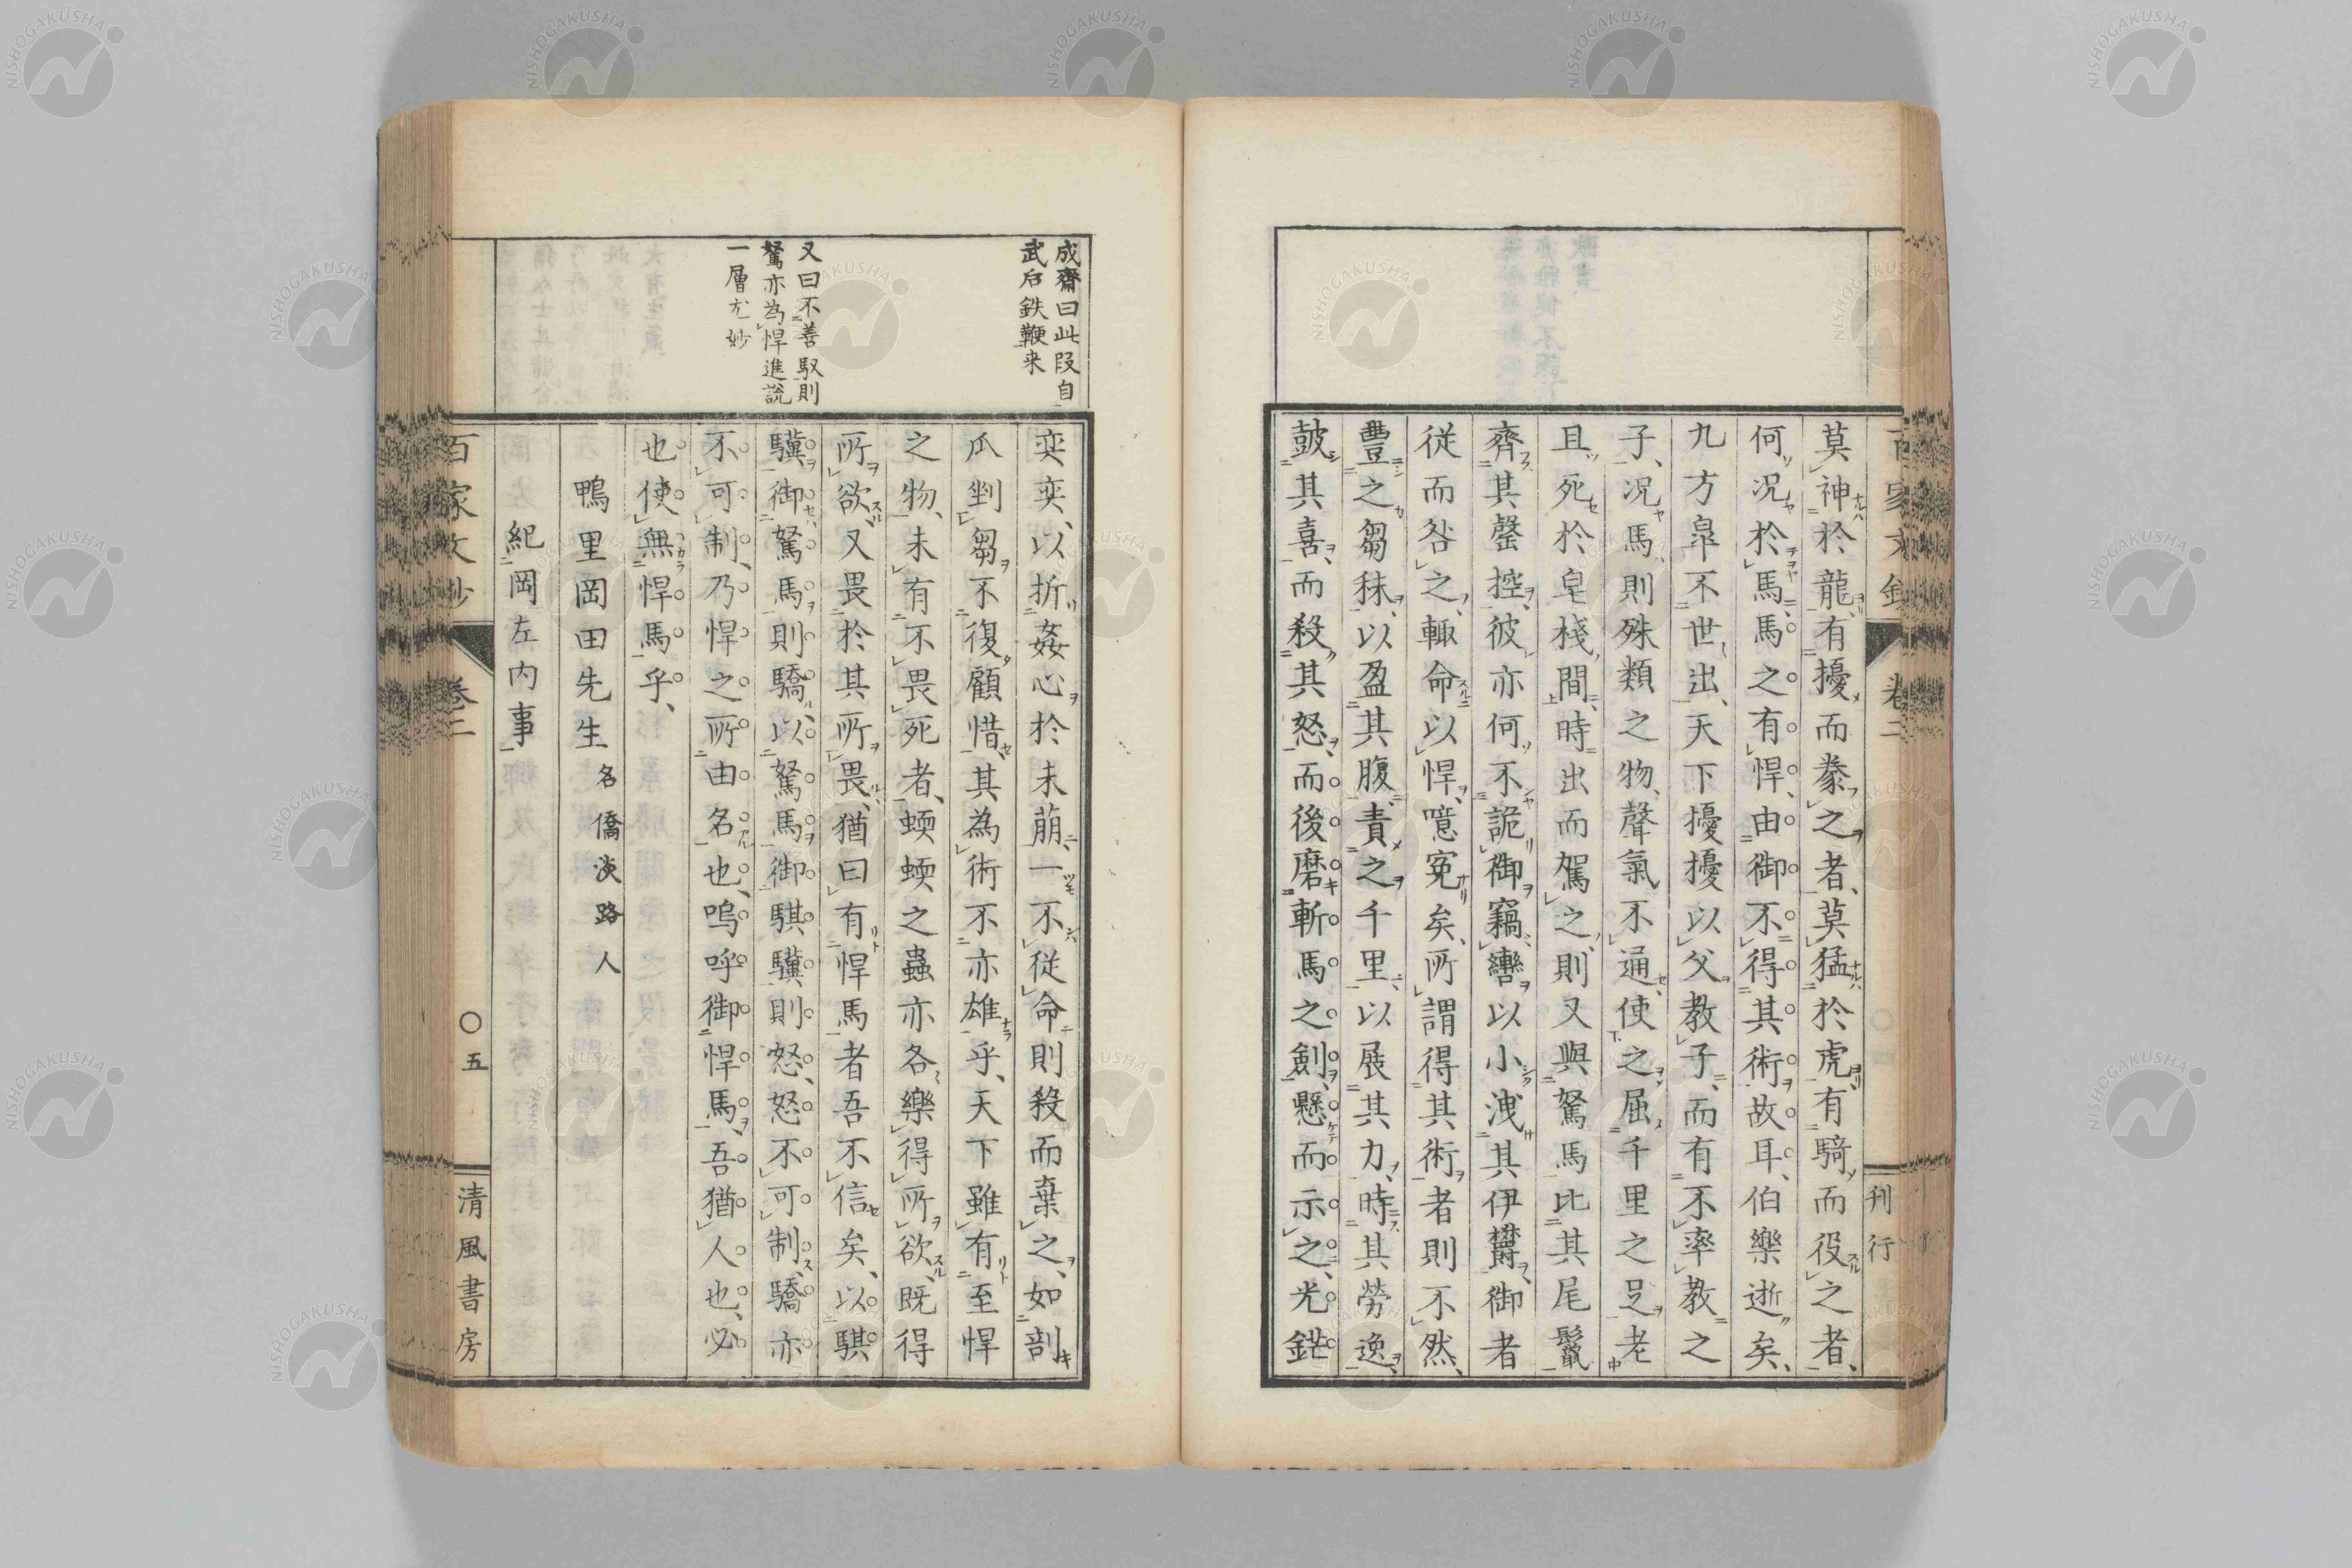 莫神於龍、有擾而豢之者、莫猛於虎、有騎而役之者、
何況於馬、馬之有悍、由御不得其術故耳、伯樂逝矣、
九方皐不世出、天下擾擾以父教子、而有不率教之
子、況馬則殊類之物、聲氣不通、使之屈千里之足、老
且死於皂棧間、時出而駕之、則又與駑馬比其尾鬣、
齊其罄控、彼亦何不詭御竊轡以小洩其伊鬱、御者
従而咎之、輙命以悍、噫寃矣、所謂得其術者則不然、
豊之芻秣、以盈其腹、責之千里、以展其力、時其勞逸、
鼓其喜、而殺其怒、而後磨斬馬之劍、懸而示之、光鋩
奕奕、以折姦心於未萠、一不従命則殺而棄之、如剖
瓜剉芻不復顧惜、其為術不亦雄乎、天下雖有至悍
之物、未有不畏死者、蝡蝡之蟲亦各樂得所欲、既得
所欲、又畏於其所畏、猶曰有悍馬者吾不信矣、以騏
驥御駑馬則驕、以駑馬御騏驥則怒、怒不可制、驕亦
不可制、乃悍之所由名也、嗚呼御悍馬、吾猶人也、必
也使無悍馬乎、
鴨里岡田先生 名僑淡路人
紀岡左内事
成齋曰此段自
武后鉄鞭来
又曰不善馭則
駑亦為悍進説
一層尤妙
百家文鈔 卷二 刊行
百家文鈔 卷二 〇五 清風書房
NISHOGAKUSHA